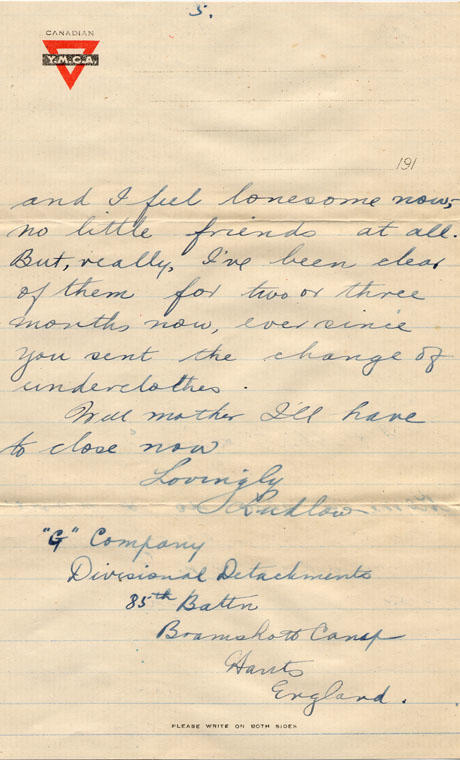 5.
CANADIAN
Y.M.C.A.
191
and I feel lonesome now,
no little friends at all.
But, really, I've been clear
of them for two or three
months now, ever since
you sent the change of
underclothes.
Well mother I'll have
to close now
Lovingly
Ludlow
"G" Company
Divisional Detachments
85th Battn
Bramshott Camp
Hants
England.
PLEASE WRITE ON BOTH SIDES